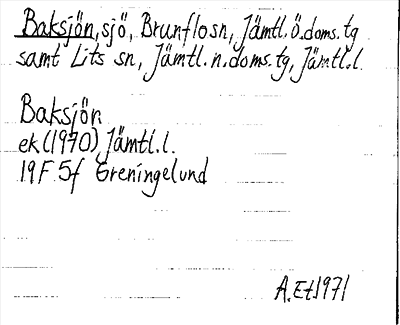 Baksjön, sjö, Brunflo sn, Jämtl. ö. doms. tg
samt Lits sn, Jämtl. n. doms. tg, Jämtl. l.
Baksjön
ek (1970) Jämtl. l.
19F 5f Greningelund
A. Et 1971